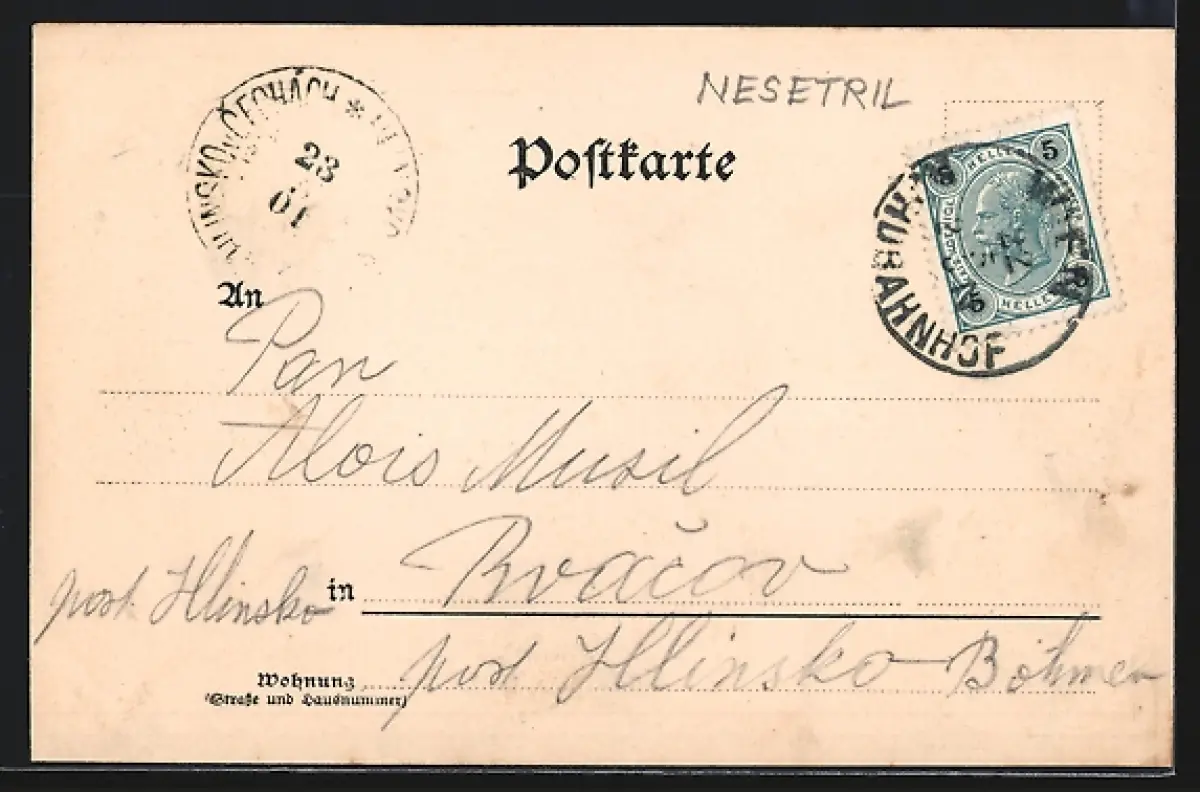 NESETRIL
HLINSKO v ČECHÁCH *
23
01
Postkarte
HELLER
5 5
5 5
HELLER
WIEN
SÜDBAHNHOF
An
Pan
Alois Musil
in Rváčov
post Hlinsko
post Hlinsko Böhmen
Wohnung
(Straße und Hausnummer)